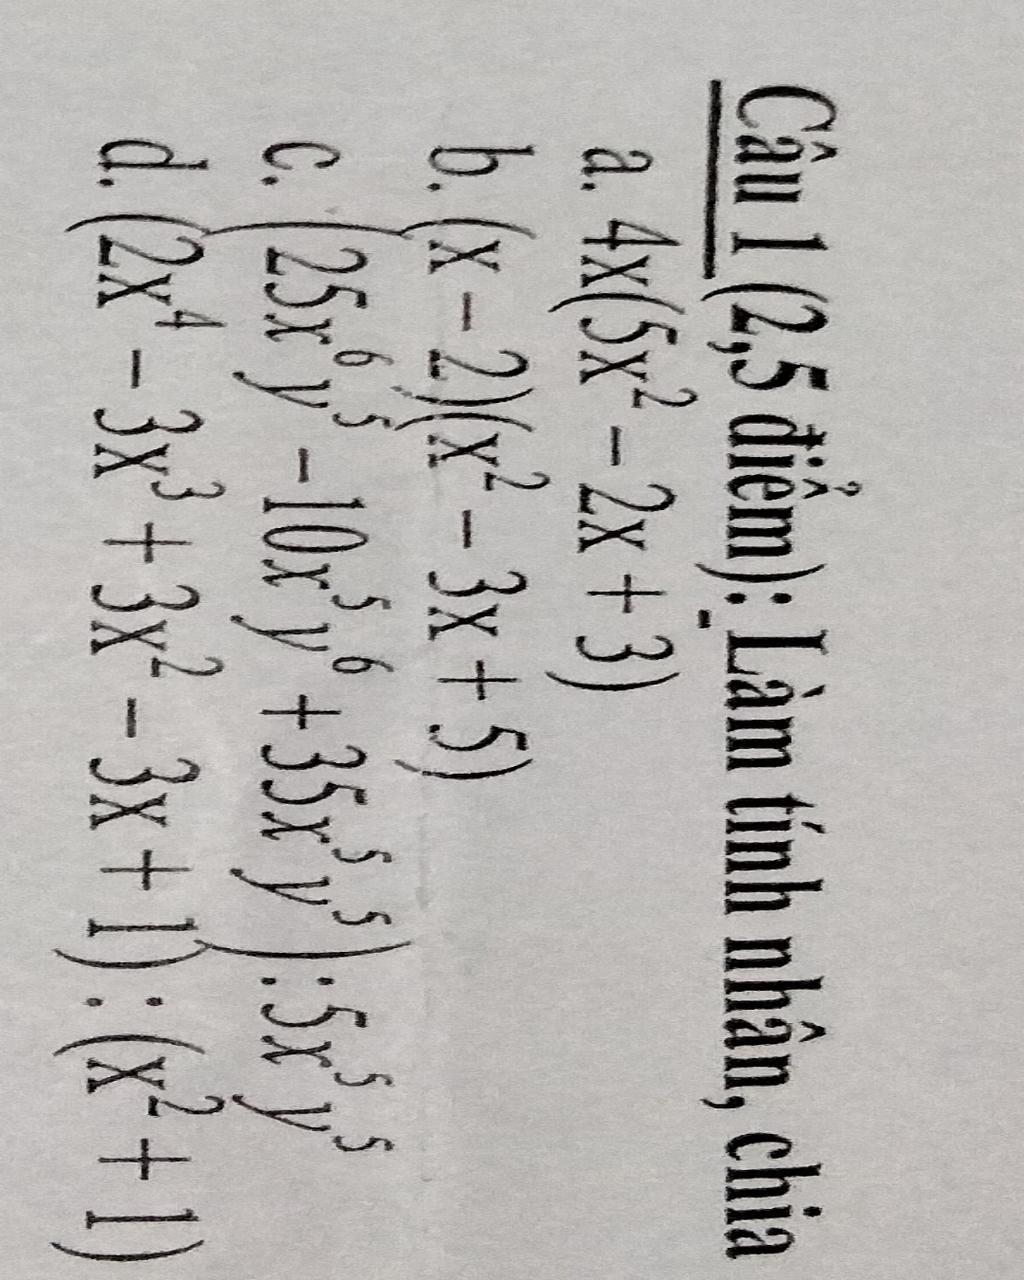 Câu 1 (2,5 điểm): Làm tính nhân, chia
a. 4x(5x² − 2x + 3)
b. (x − 2)(x² − 3x + 5)
c. (25x⁶y⁵ − 10x⁵y⁶ + 35x⁵y⁵) : 5x⁵y⁵
d. (2x⁴ − 3x³ + 3x² − 3x + 1) : (x² + 1)